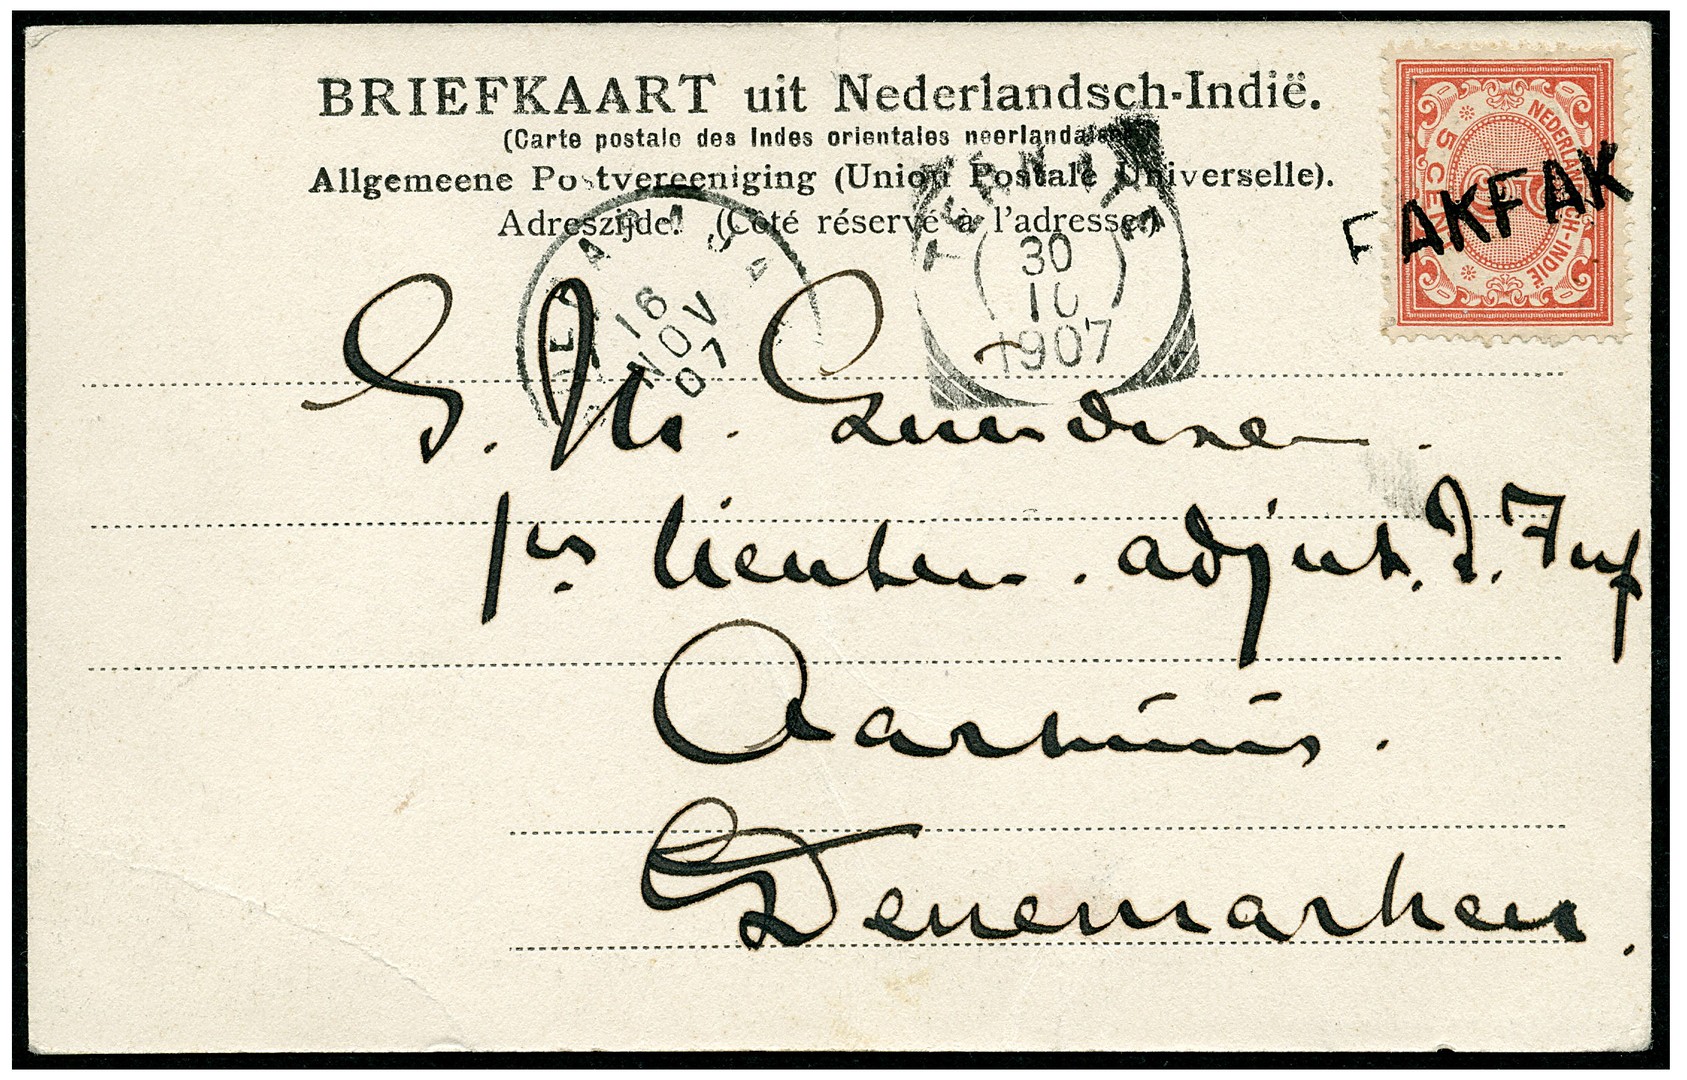 BRIEFKAART uit Nederlandsch-Indië.
(Carte postale des Indes orientales neerlandaises)
Allgemeene Postvereeniging (Union Postale Universelle).
Adreszijde. (Côté réservé à l'adresse.)
NEDERLANDSCH-INDIË
5 CENT
5
FAKFAK
30
10
1907
16
NOV
07
1er lieuten. adjut. d. Inf
Aarhuus.
Denemarken.